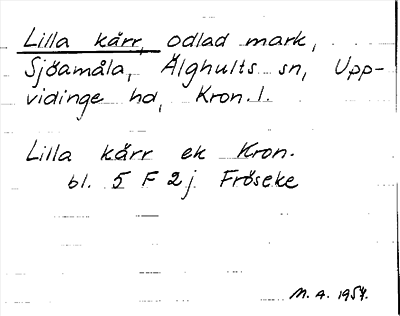 Lilla kärr, odlad mark,
Sjöamåla, Älghults sn, Upp-
vidinge hd, Kron. l.
Lilla kärr ek Kron.
bl. 5 F 2 j Fröseke
M. A. 1957.